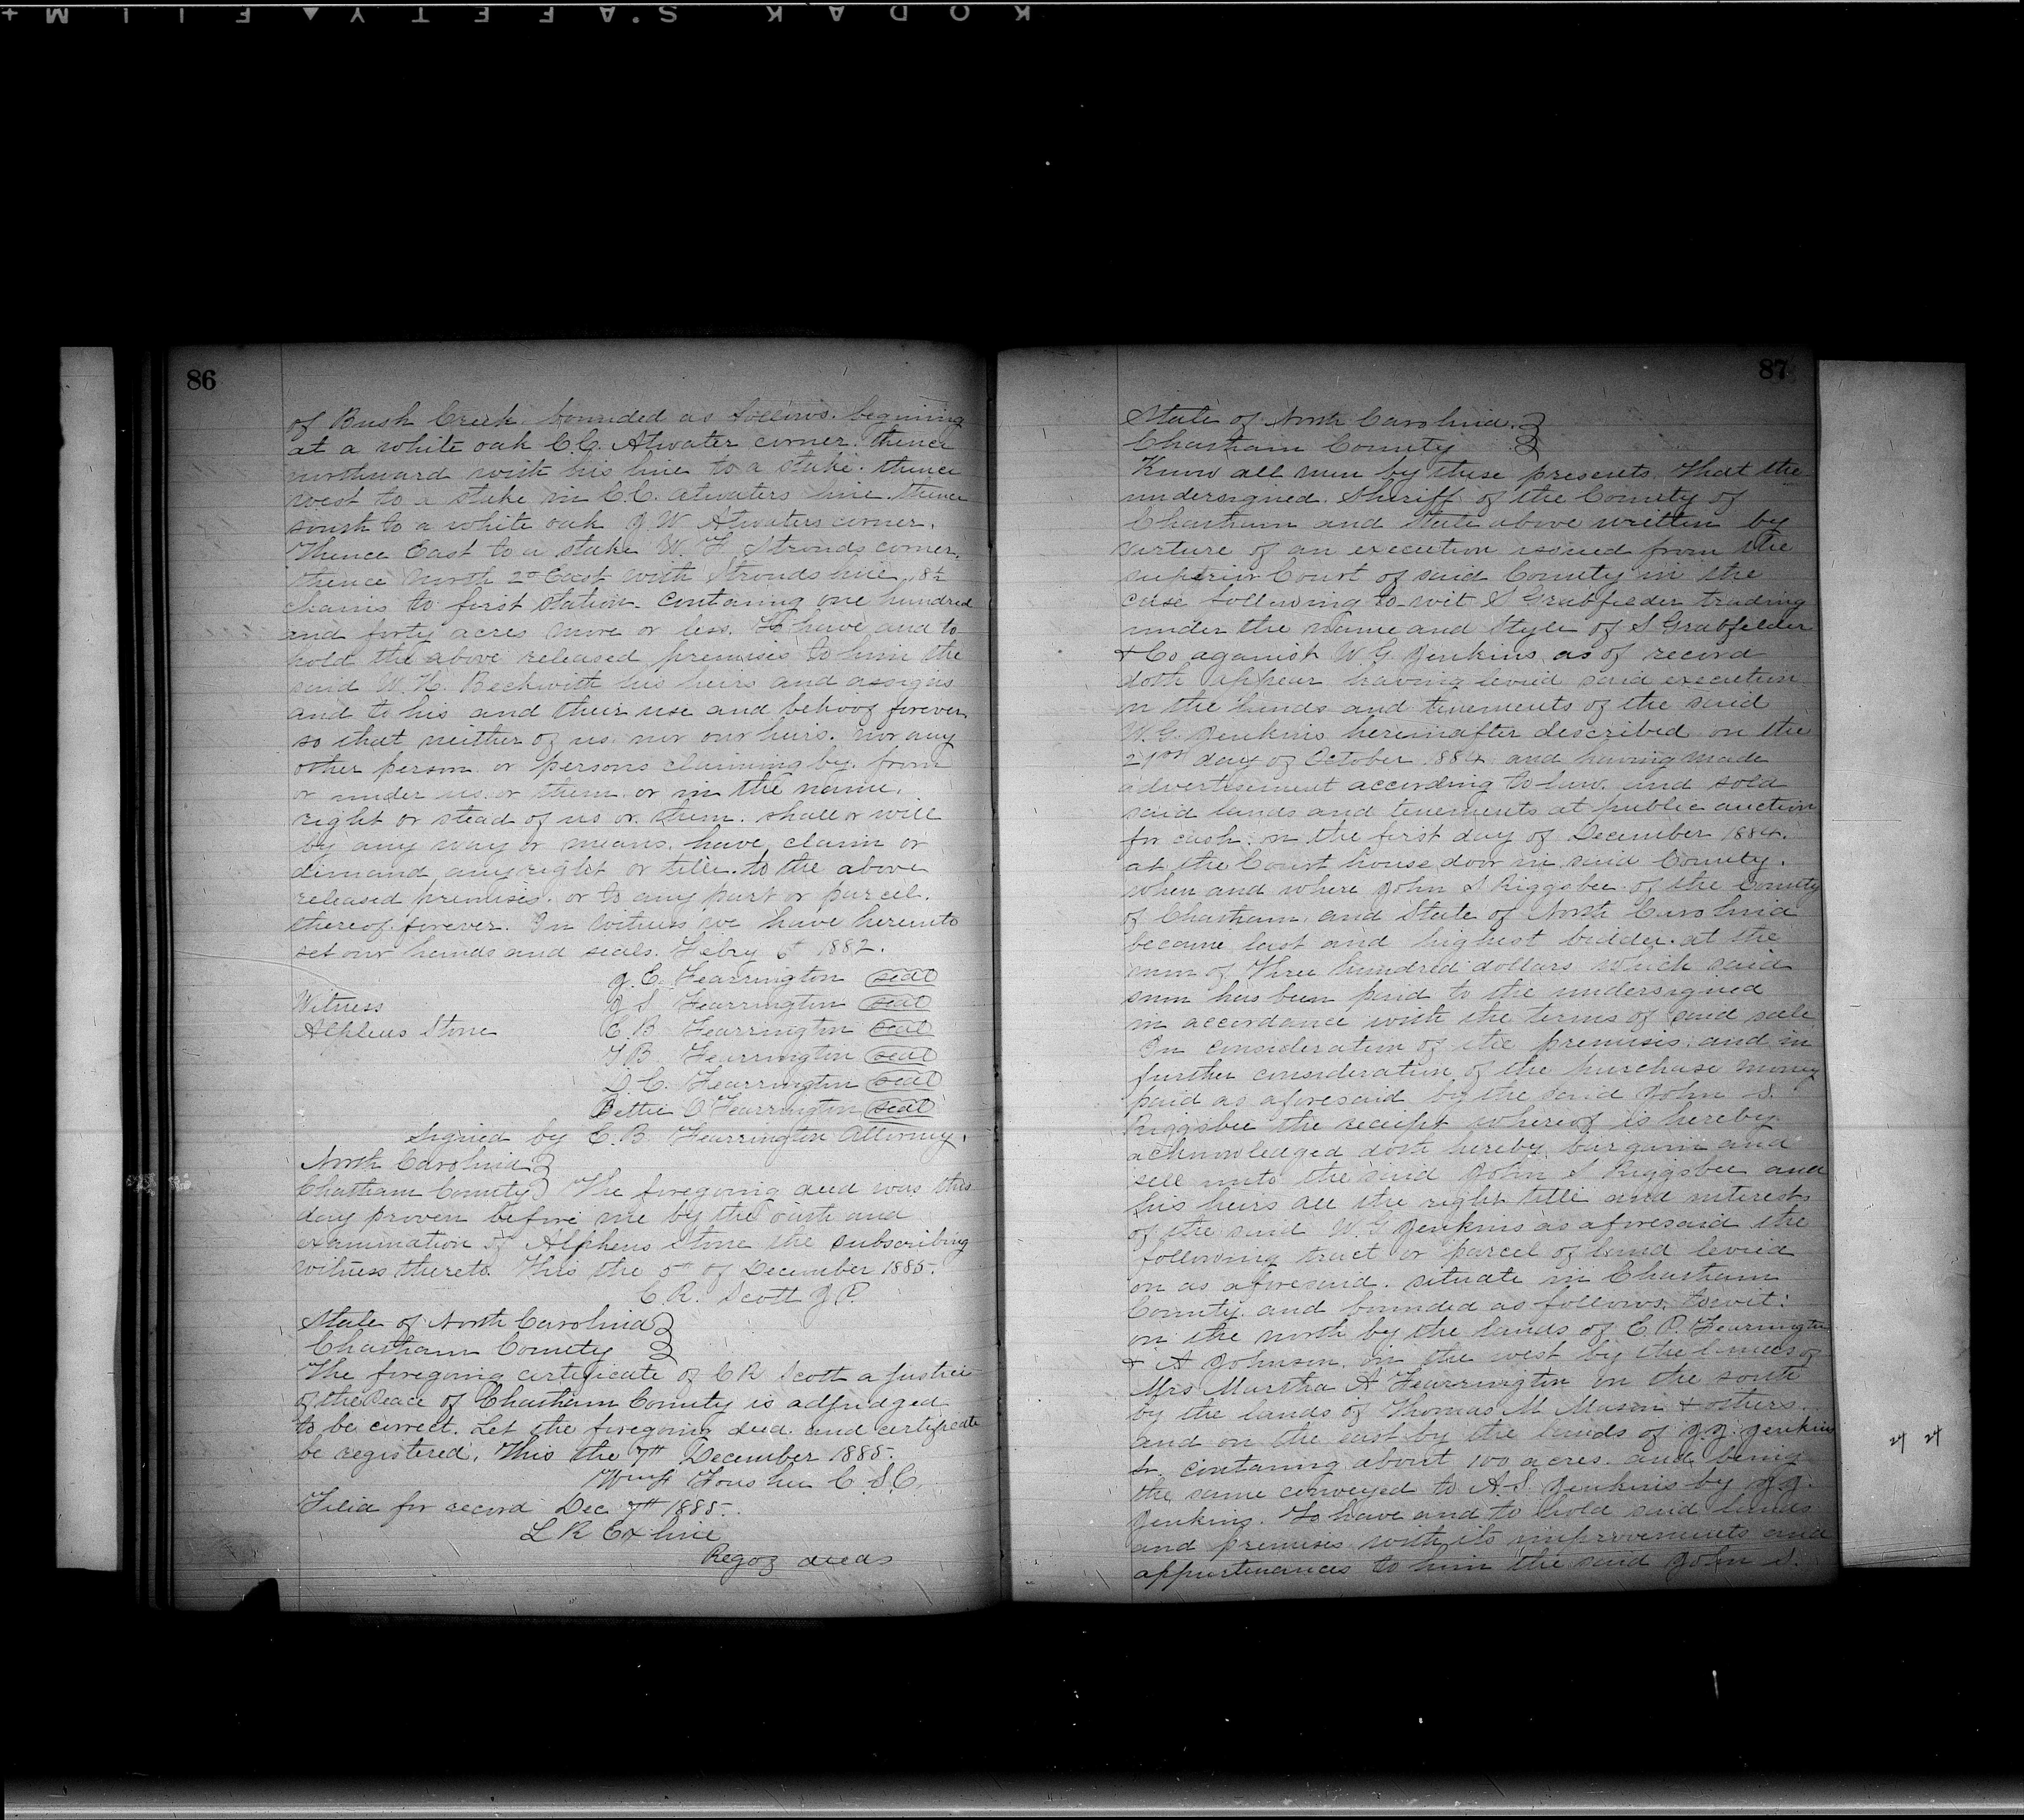 KODAK S.AFETY ▲ FILM +
86
of Bush Creek bounded as follows. begining
at a white oak C.C. Atwater corner. thence
northward with his line to a stake. thence
west to a stake in C.C. Atwaters line. thence
south to a white oak J W Atwaters corner.
Thence East to a stake W. F. Strouds corner.
thence North 2° East with Strouds line 18½
chains to first station. contaning one hundred
and forty acres more or less. To have and to
hold the above released premises to him the
said W. H. Beckwith his heirs and assigns
and to his and their use and behoof forever
so that neither of us. nor our heirs. nor any
other person or persons claiming by. from
or under us. or them. or in the name.
right or stead of us or them. shall or will
by any way or means, have, claim or
demand any right or title. to the above
released premises. or to any part or parcel.
thereof forever. In witness we have hereunto
set our hands and seals. Febry 6th 1882.
J. E. Fearrington seal
Witness J S Fearrington seal
Alpheus Stone E. B Fearrington seal
T B Fearrington seal
J. C. Fearrington seal
Bettie O Fearrington seal
Signed by E. B. Fearrington Attorney.
North Carolina
Chatham County The foregoing deed was this
day proven before me by the oath and
examination of Alpheus Stone the subscribing
witness thereto. This the 5th of December 1885.
C. R. Scott J P.
State of North Carolina
Chatham County
The foregoing certificate of C R Scott a justice
of the Peace of Chatham County is adjudged
to be correct. Let the foregoing deed and certificate
be registered. This the 7th December 1885.
Foushee C. S. C.
Filed for record Dec 7th 1885.
L R Exline
Reg of deeds
87
State of North Carolina.
Chatham County
Know all men by these presents. That the
undersigned. Sheriff of the County of
Chatham and State above written by
virture of an execution issued from the
superior Court of said County in the
case following to wit S Grabfelder trading
under the name and Style of S Grabfelder
& Co aganist W. G. Jenkins as of record
doth appear having levied said execution
on the lands and tenements of the said
W. G. Jenkins hereinafter described on the
21st day of October 1884. and having made
advertisement according to law. and sold
said lands and tenements at public auction
for cash. on the first day of December 1884.
at the Court house door in said County.
when and where John S Riggsbee of the County
of Chatham. and State of North Carolina
became last and highest bidder. at the
sum of Three hundred dollars which said
sum has been paid to the undersigned
in accordance with the terms of said sale
In consideration of the premises. and in
further consideration of the purchase money
paid as aforesaid by the said John S.
Riggsbee the receipt whereof is hereby
acknowledged doth hereby bargain and
sell unto the said John S Riggsbee and
his heirs all the right title and interests
of the said W. G Jenkins as aforesaid the
following tract or parcel of land levied
on as aforesaid. situate in Chatham
County. and bounded as follows. to wit:
on the north by the lands of E. P. Fearrington
& A Johnson. on the west by the lands of
Mrs Martha A Fearrington on the south
by the lands of Thomas M Mason & others.
and on the east by the lands of J. J. Jenkins
Sr. contaning about 100 acres. and being
the same conveyed to A. S. Jenkins by J. J.
Jenkins. To have and to hold said lands
and premises with its improvements and
appurtenances to him the said John S.
24 24